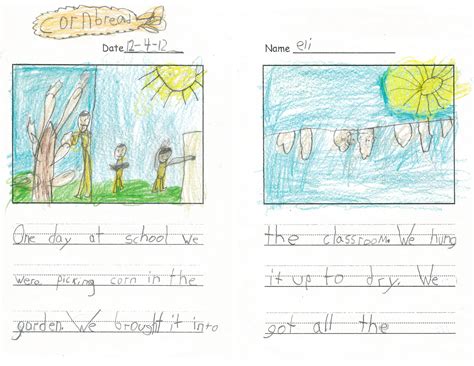 cornbread
Date 12-4-12
One day at school we
were picking corn in the
garden. We brought it into
Name eli
the classroom. We hung
it up to dry. We
got all the